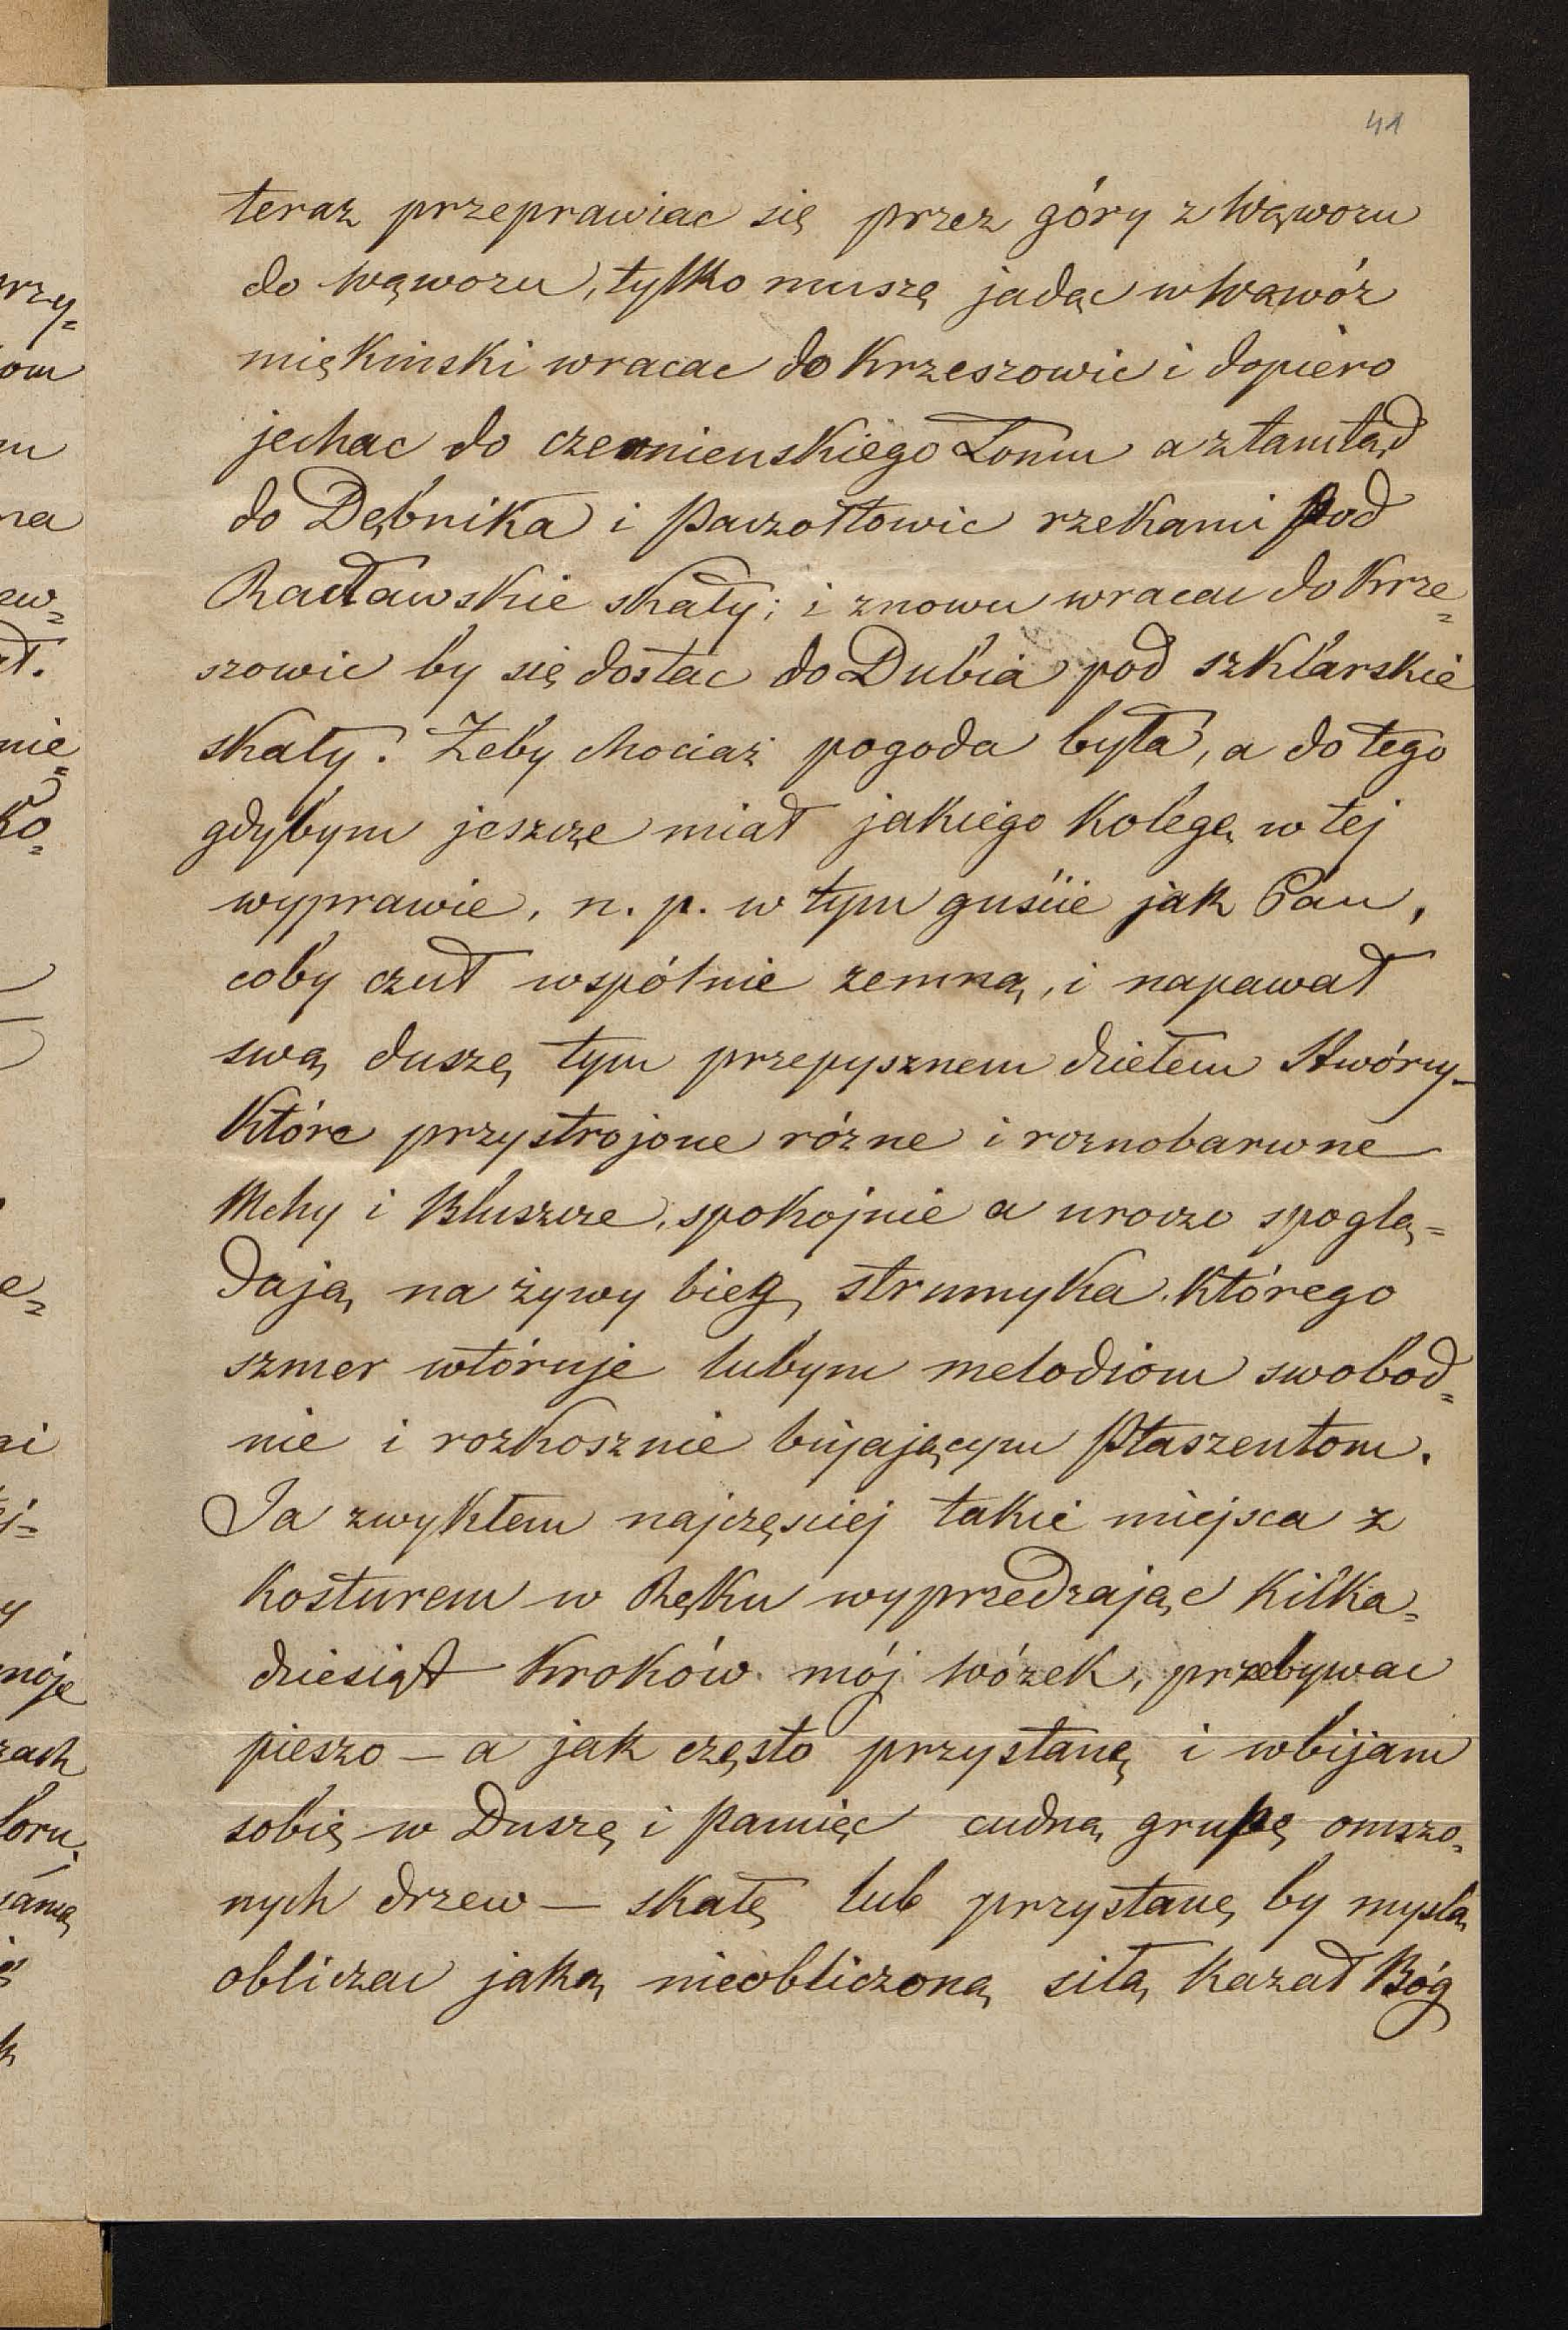 41
teraz przeprawiac się przez góry z Wąwozu
do wąwozu, tylko muszę jadąc w Wąwóz
miękinski wracac do Krzeszowic i dopiero
jechac do czernienskiego Łomu a ztamtąd
do Dębnika i Paczołtowic rzekami pod
Racławskie skały; i znowu wracac do Krze=
szowic by się dostac do Dubia pod szklarskie
skały. Żeby chociaż pogoda była, a do tego
gdybym jeszcze miał jakiego kolegę w tej
wyprawie, n. p. w tym guście jak Pan,
coby czuł wspólnie zemną, i napawał
swą duszę tym przepysznem dziełem Stwórcy-
które przystrojone różne i roznobarwne
Mchy i Bluszcze, spokojnie a uroczo spoglą=
dają na żywy bieg strumyka którego
szmer wtóruje lubym melodiom swobod=
nie i rozkosznie bujającym Ptaszentom.
Ja zwykłem najczęsciej takie miejsca z
kosturem w Ręku wyprzedzając kilka=
dziesiąt kroków mój wózek, przebywac
pieszo — a jak często przystanę i wbijam
sobię w Duszę i Pamięc cudną grupę omszo=
nych drzew — skałę lub przystanę by myslą
obliczac jaką nieobliczoną siłą kazał Bóg
przy=
om
na
ew=
ał.
nie=
ko=
moje
zach